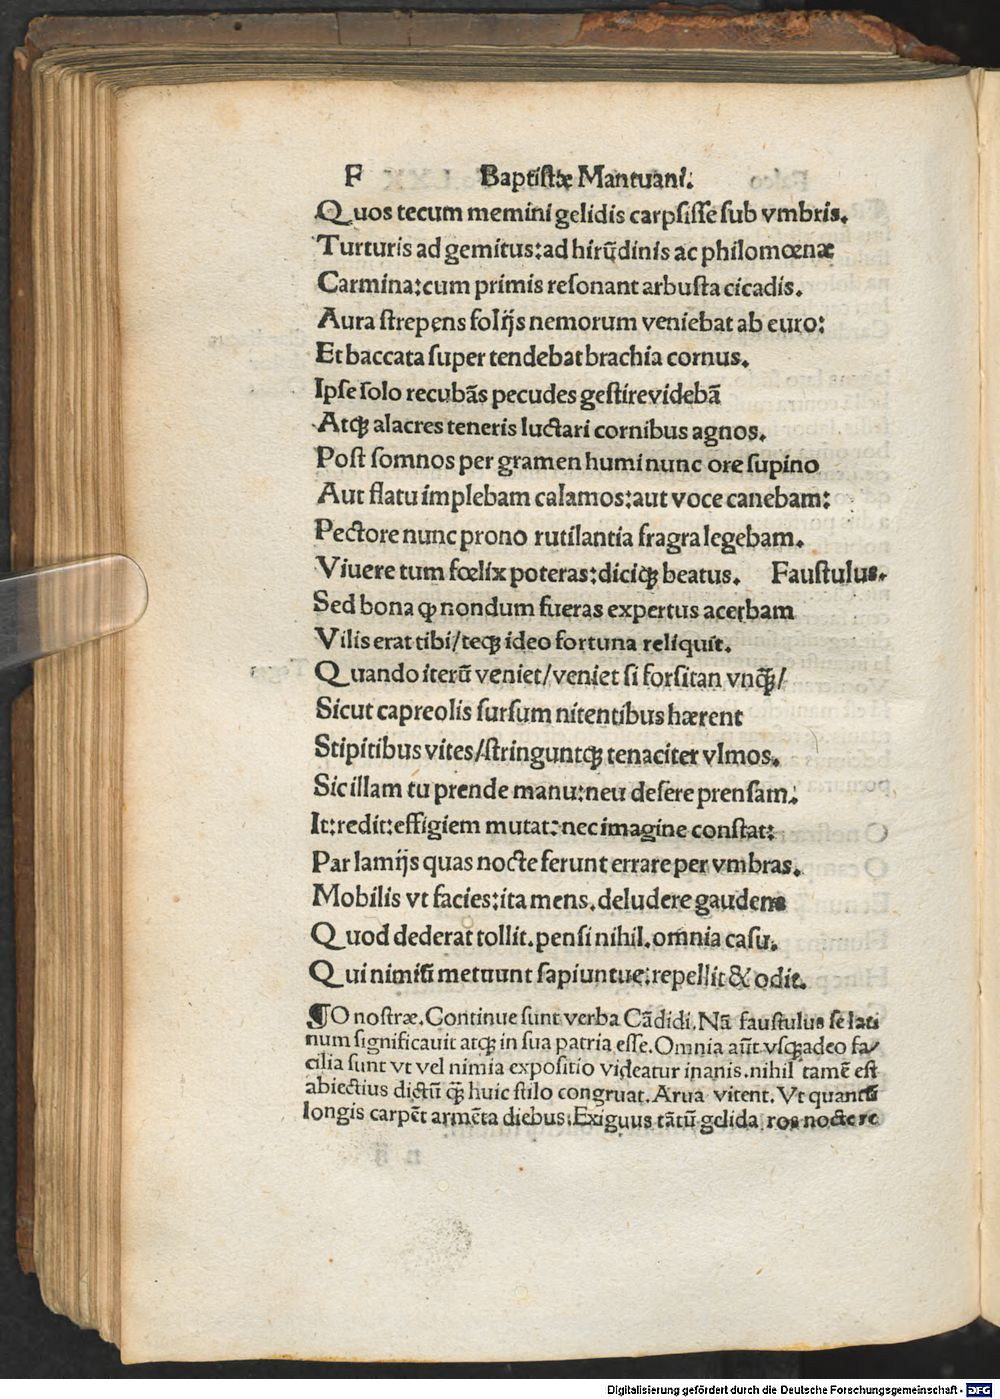 F Baptistæ Mantuani.
Quos tecum memini gelidis carpsisse sub vmbris.
Turturis ad gemitus: ad hirūdinis ac philomœnæ
Carmina: cum primis resonant arbusta cicadis.
Aura strepens folijs nemorum veniebat ab euro:
Et baccata super tendebat brachia cornus.
Ipse solo recubās pecudes gestire videbā
Atqꝫ alacres teneris luctari cornibus agnos.
Post somnos per gramen humi nunc ore supino
Aut flatu implebam calamos: aut voce canebam:
Pectore nunc prono rutilantia fragra legebam.
Viuere tum fœlix poteras: diciqꝫ beatus. Faustulus.
Sed bona ꝙ nondum fueras expertus acerbam
Vilis erat tibi/teqꝫ ideo fortuna reliquit.
Quando iterū veniet/veniet si forsitan vnq̄ꝫ/
Sicut capreolis sursum nitentibus hærent
Stipitibus vites/stringuntqꝫ tenaciter vlmos.
Sic illam tu prende manu: neu desere prensam.
It: redit: effigiem mutat: nec imagine constat:
Par lamijs quas nocte ferunt errare per vmbras.
Mobilis vt facies: ita mens. deludere gaudens
Quod dederat tollit. pensi nihil. omnia casu.
Qui nimiū metuunt sapiuntue: repellit & odit.
¶O nostræ. Continue sunt verba Cādidi. Nā faustulus se lati
num significauit atqꝫ in sua patria esse. Omnia aūt vsqꝫadeo fa/
cilia sunt vt vel nimia expositio videatur inanis. nihil tamē est
abiectius dictū q̄ꝫ huic stilo congruat. Arua vitent. Vt quantū
longis carpēt armēta diebus. Exiguus tātū gelida ros nocte re
Digitalisierung gefördert durch die Deutsche Forschungsgemeinschaft - DFG